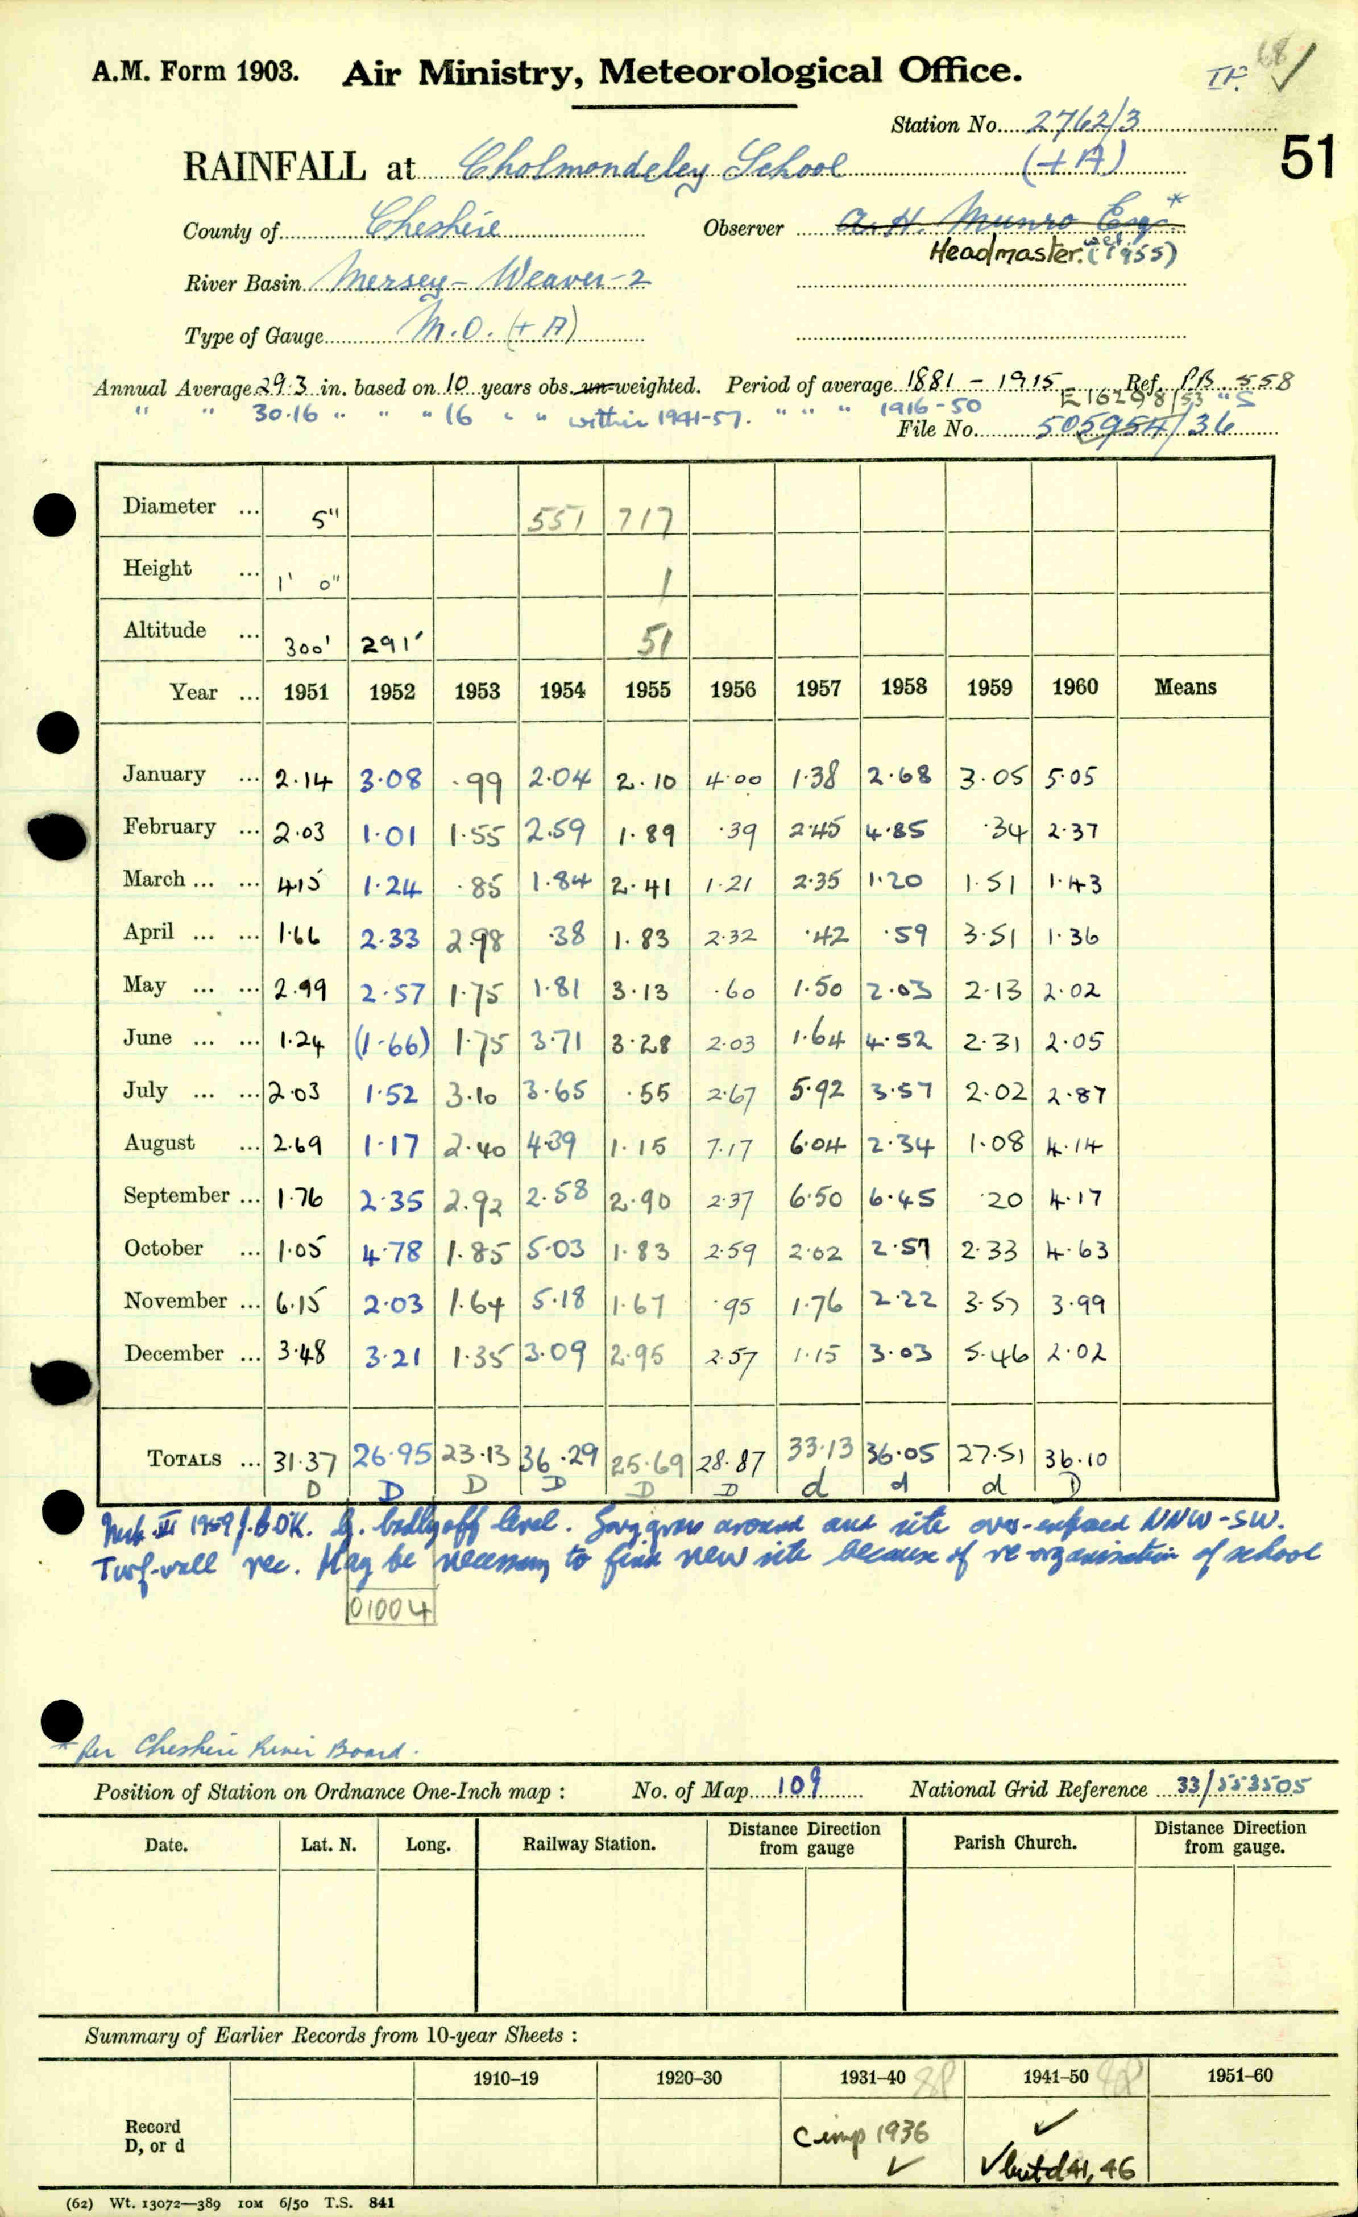 68
A.M. Form 1903. Air Ministry, Meteorological Office.
Station No. 2762/3
RAINFALL at Cholmondeley School (+A)
51
County of Cheshire Observer A. H. Munro Esq. *
Headmaster. (1955)
River Basin Mersey - Weaver - 2
Type of Gauge M.O. (+ A)
Annual Average 29.3 in. based on 10 years obs. un-weighted. Period of average 1881 - 1915 Ref. PB 558
" " 30.16 " " " 16 " " within 1941-57. " " " 1916-50 E16298/53 "S
File No. 505954/36
Diameter ... 5" 551 717
Height ... 1' 0" 1
Altitude ... 300' 291' 51
Year ... 1951 1952 1953 1954 1955 1956 1957 1958 1959 1960 Means
January ... 2.14 3.08 .99 2.04 2.10 4.00 1.38 2.68 3.05 5.05
February ... 2.03 1.01 1.55 2.59 1.89 .39 2.45 4.85 .34 2.37
March ... ... 4.15 1.24 .85 1.84 2.41 1.21 2.35 1.20 1.51 1.43
April ... ... 1.66 2.33 2.98 .38 1.83 2.32 .42 .59 3.51 1.36
May ... ... 2.99 2.57 1.75 1.81 3.13 .60 1.50 2.03 2.13 2.02
June ... ... 1.24 (1.66) 1.75 3.71 3.28 2.03 1.64 4.52 2.31 2.05
July ... ... 2.03 1.52 3.10 3.65 .55 2.67 5.92 3.57 2.02 2.87
August ... 2.69 1.17 2.40 4.39 1.15 7.17 6.04 2.34 1.08 4.14
September ... 1.76 2.35 2.92 2.58 2.90 2.37 6.50 6.45 .20 4.17
October ... 1.05 4.78 1.85 5.03 1.83 2.59 2.02 2.57 2.33 4.63
November ... 6.15 2.03 1.64 5.18 1.67 .95 1.76 2.22 3.57 3.99
December ... 3.48 3.21 1.35 3.09 2.95 2.57 1.15 3.03 5.46 2.02
TOTALS ... 31.37 26.95 23.13 36.29 25.69 28.87 33.13 36.05 27.51 36.10
D D D D D D d d d D
1959 G. badly off level. Long grass around and site over-exposed NNW-SW.
Turf-wall rec. May be necessary to find new site because of re-organisation of school
01004
* Per Cheshire River Board.
Position of Station on Ordnance One-Inch map : No. of Map 109 National Grid Reference 33/553505
Date. Lat. N. Long. Railway Station. Distance Direction from gauge Parish Church. Distance Direction from gauge.
Summary of Earlier Records from 10-year Sheets :
1910–19 1920–30 1931–40 88 1941–50 1951–60
Record
D, or d
C imp 1936 ✓
✓
✓ but d 41, 46
(62) Wt. 13072—389 10M 6/50 T.S. 841